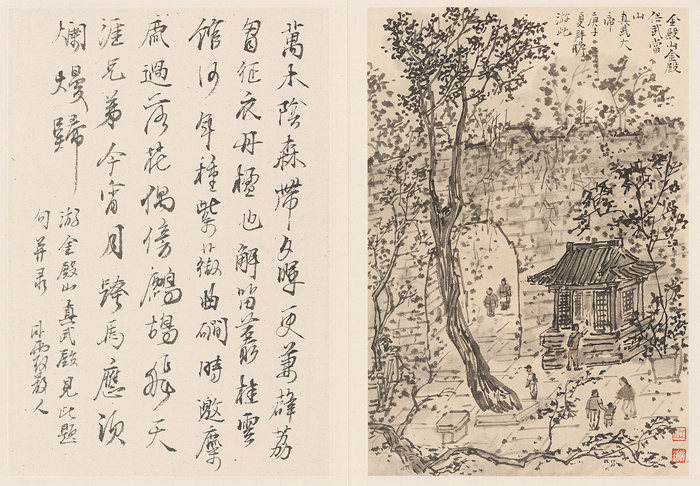 金殿山金殿
供武當
山
真武大
帝
庚子
夏
游此
萬木陰森帶夕暉更兼薜荔
征衣丹也解留叢桂雲
館何年種紫薇曲磵時邀麋
鹿過落花偶傍鷓鴣飛天
涯兄弟今宵月跨馬應須
爛熳歸
游金殿山真武殿見此題
句并录 人